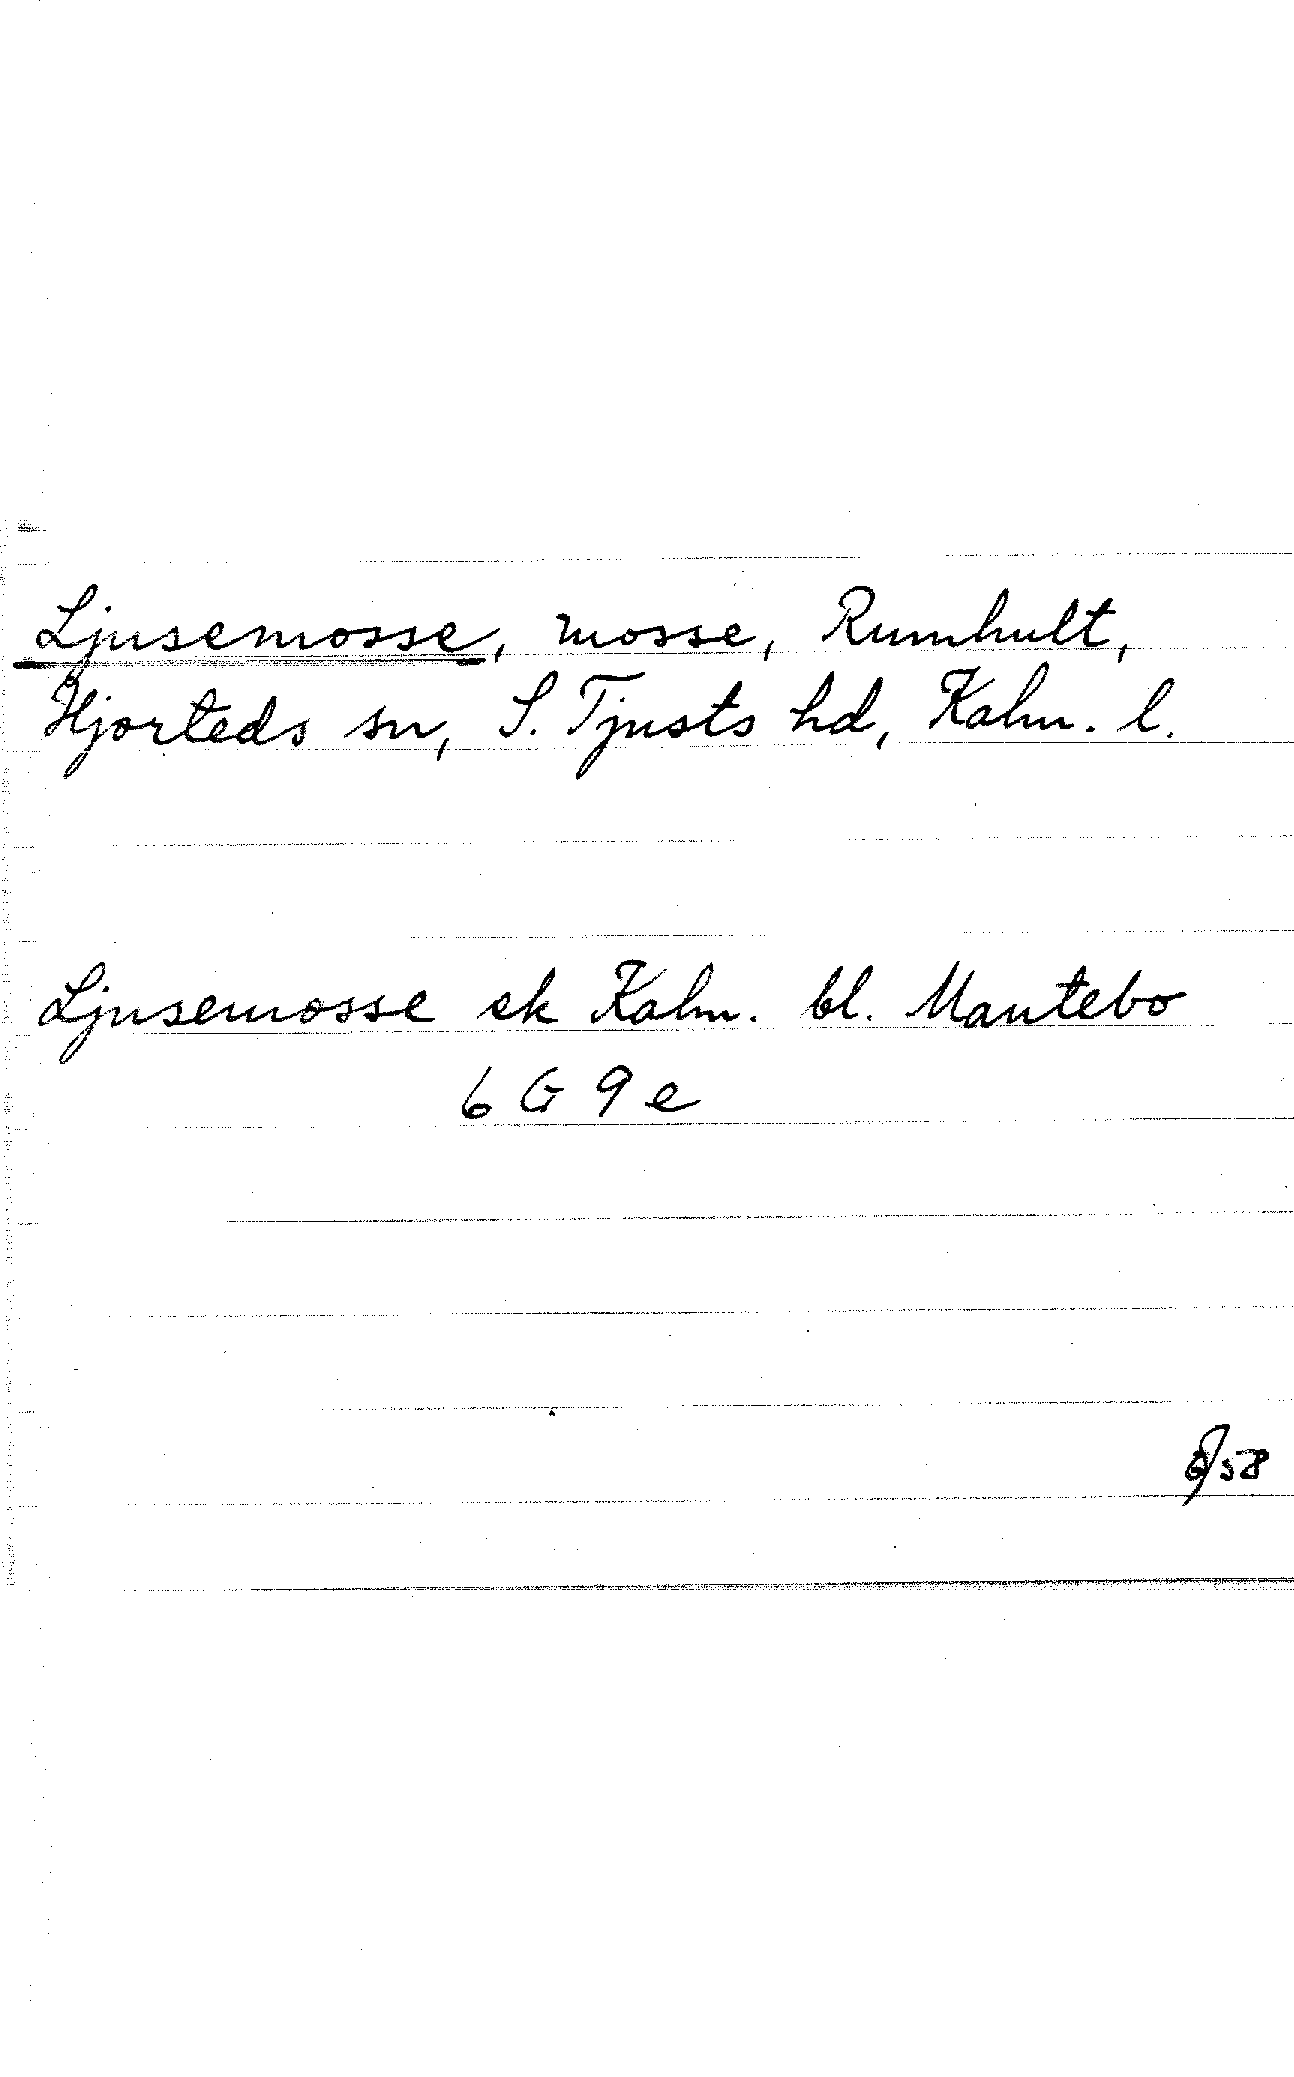 Ljusemosse, mosse, Rumhult,
Hjorteds sn, S. Tjusts hd, Kalm. l.
Ljusemosse ek Kalm. bl. Mantebo
6 G 9 e
58